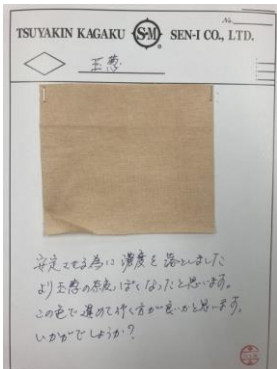 No.
TSUYAKIN KAGAKU S·M SEN-I CO., LTD.
玉葱
安定させる為に濃度を落としました
より玉葱の色っぽくなったと思います。
この色で進めて行く方が良いかと思います。
いかがでしょうか?